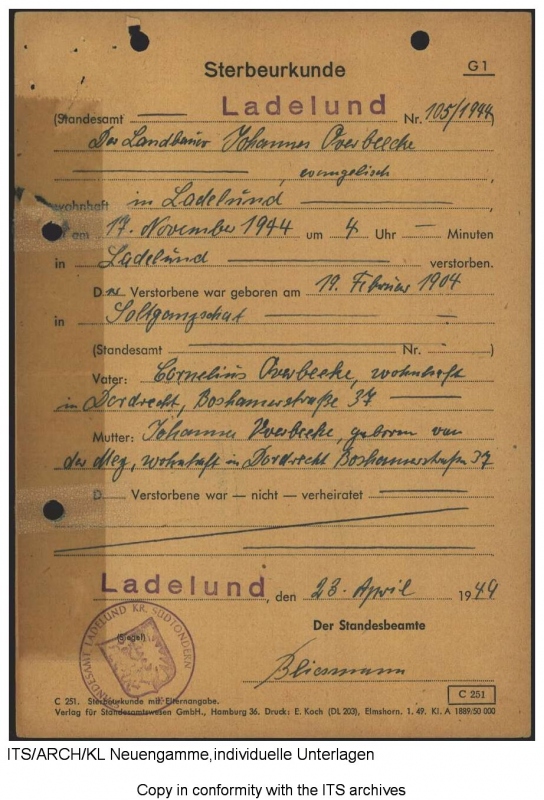 Sterbeurkunde
G 1
(Standesamt Ladelund Nr. 105/1944)
Der Landbauer Johannes Overbeecke
evangelisch,
wohnhaft in Ladelund
ist am 17. November 1944 um 4 Uhr — Minuten
in Ladelund verstorben.
Der Verstorbene war geboren am 19. Februar 1904
in
(Standesamt Nr. )
Vater: Cornelius Overbeecke, wohnhaft
in Dordrecht, 37
Mutter: Johanna Overbeecke, geboren van
der, wohnhaft in Dordrecht 37
D Verstorbene war — nicht — verheiratet
Ladelund, den 23. April 1949
Der Standesbeamte
(Siegel)
STANDESAMT LADELUND KR. SÜDTONDERN
C 251
C 251. Sterbeurkunde mit Elternangabe.
Verlag für Standesamtswesen GmbH., Hamburg 36. Druck: E. Koch (DL 203), Elmshorn. 1. 49. Kl. A 1889/50 000
ITS/ARCH/KL Neuengamme,individuelle Unterlagen
Copy in conformity with the ITS archives